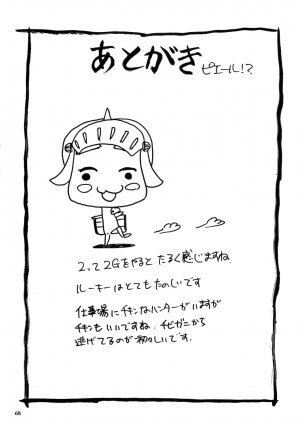 あとがき
ピエール!?
2って2Gをやると たるく感じますね
ルーキーはとてもたのしいです
仕事場にチキンなハンターがいますが
チキンもいいですね。チビガニから
逃げてるのが初々しいです。
68